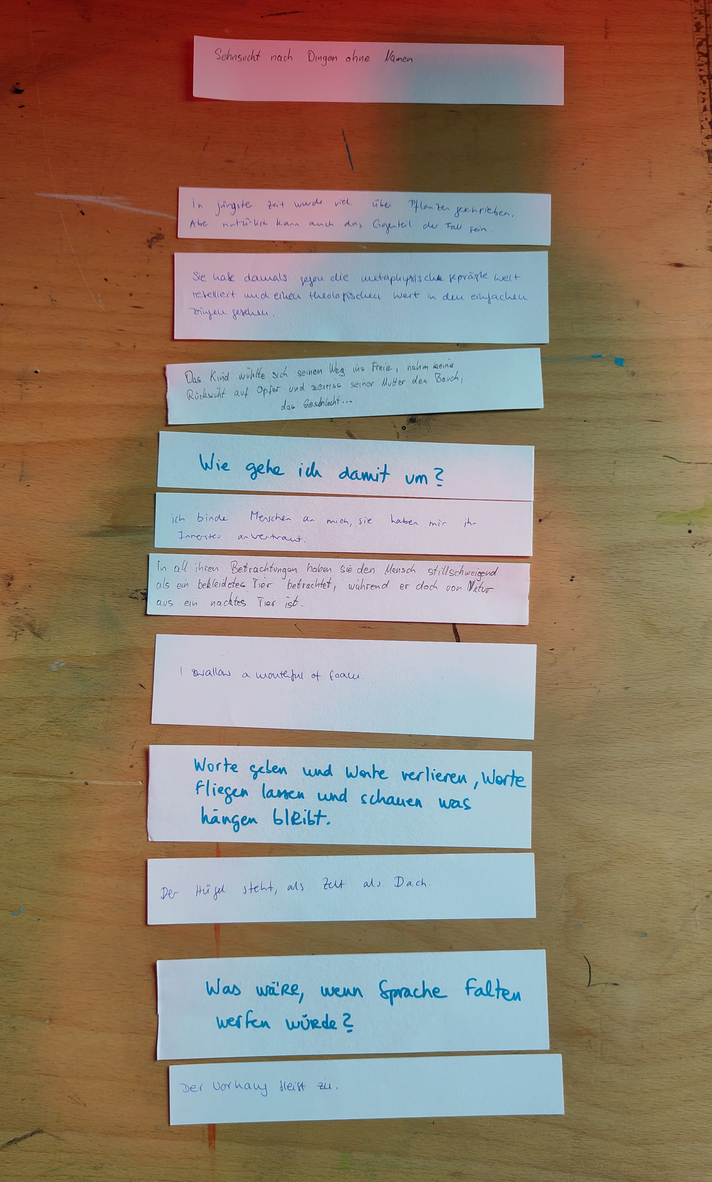 Sehnsucht nach Dingen ohne Namen
In jüngster Zeit wurde viel über Pflanzen geschrieben.
Aber natürlich kann auch das Gegenteil der Fall sein.
Sie habe damals gegen die metaphysische geprägte Welt
rebelliert und einen theologischen Wert in den einfachen
Dingen gesehen.
Das Kind wühlte sich seinen Weg ins Freie, nahm keine
Rücksicht auf Opfer und zerriss seiner Mutter den Bauch,
das Geschlecht...
Wie gehe ich damit um?
ich binde Menschen an mich, sie haben mir ihr
Innerstes anvertraut.
In all ihren Betrachtungen haben sie den Mensch stillschweigend
als ein bekleidetes Tier betrachtet, während er doch von Natur
aus ein nacktes Tier ist.
I swallow a mouthful of foam
Worte geben und Worte verlieren, Worte
fliegen lassen und schauen was
hängen bleibt.
Der Hügel steht, als Zelt als Dach.
Was wäre, wenn Sprache Falten
werfen würde?
Der Vorhang bleibt zu.